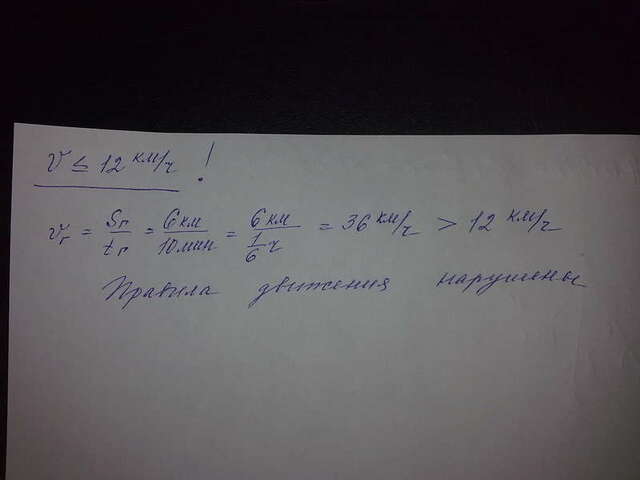 v ≤ 12 км/ч !
vг = Sг/tг = 6 км/10 мин = 6 км/(1/6 ч) = 36 км/ч > 12 км/ч
Правила движения нарушены